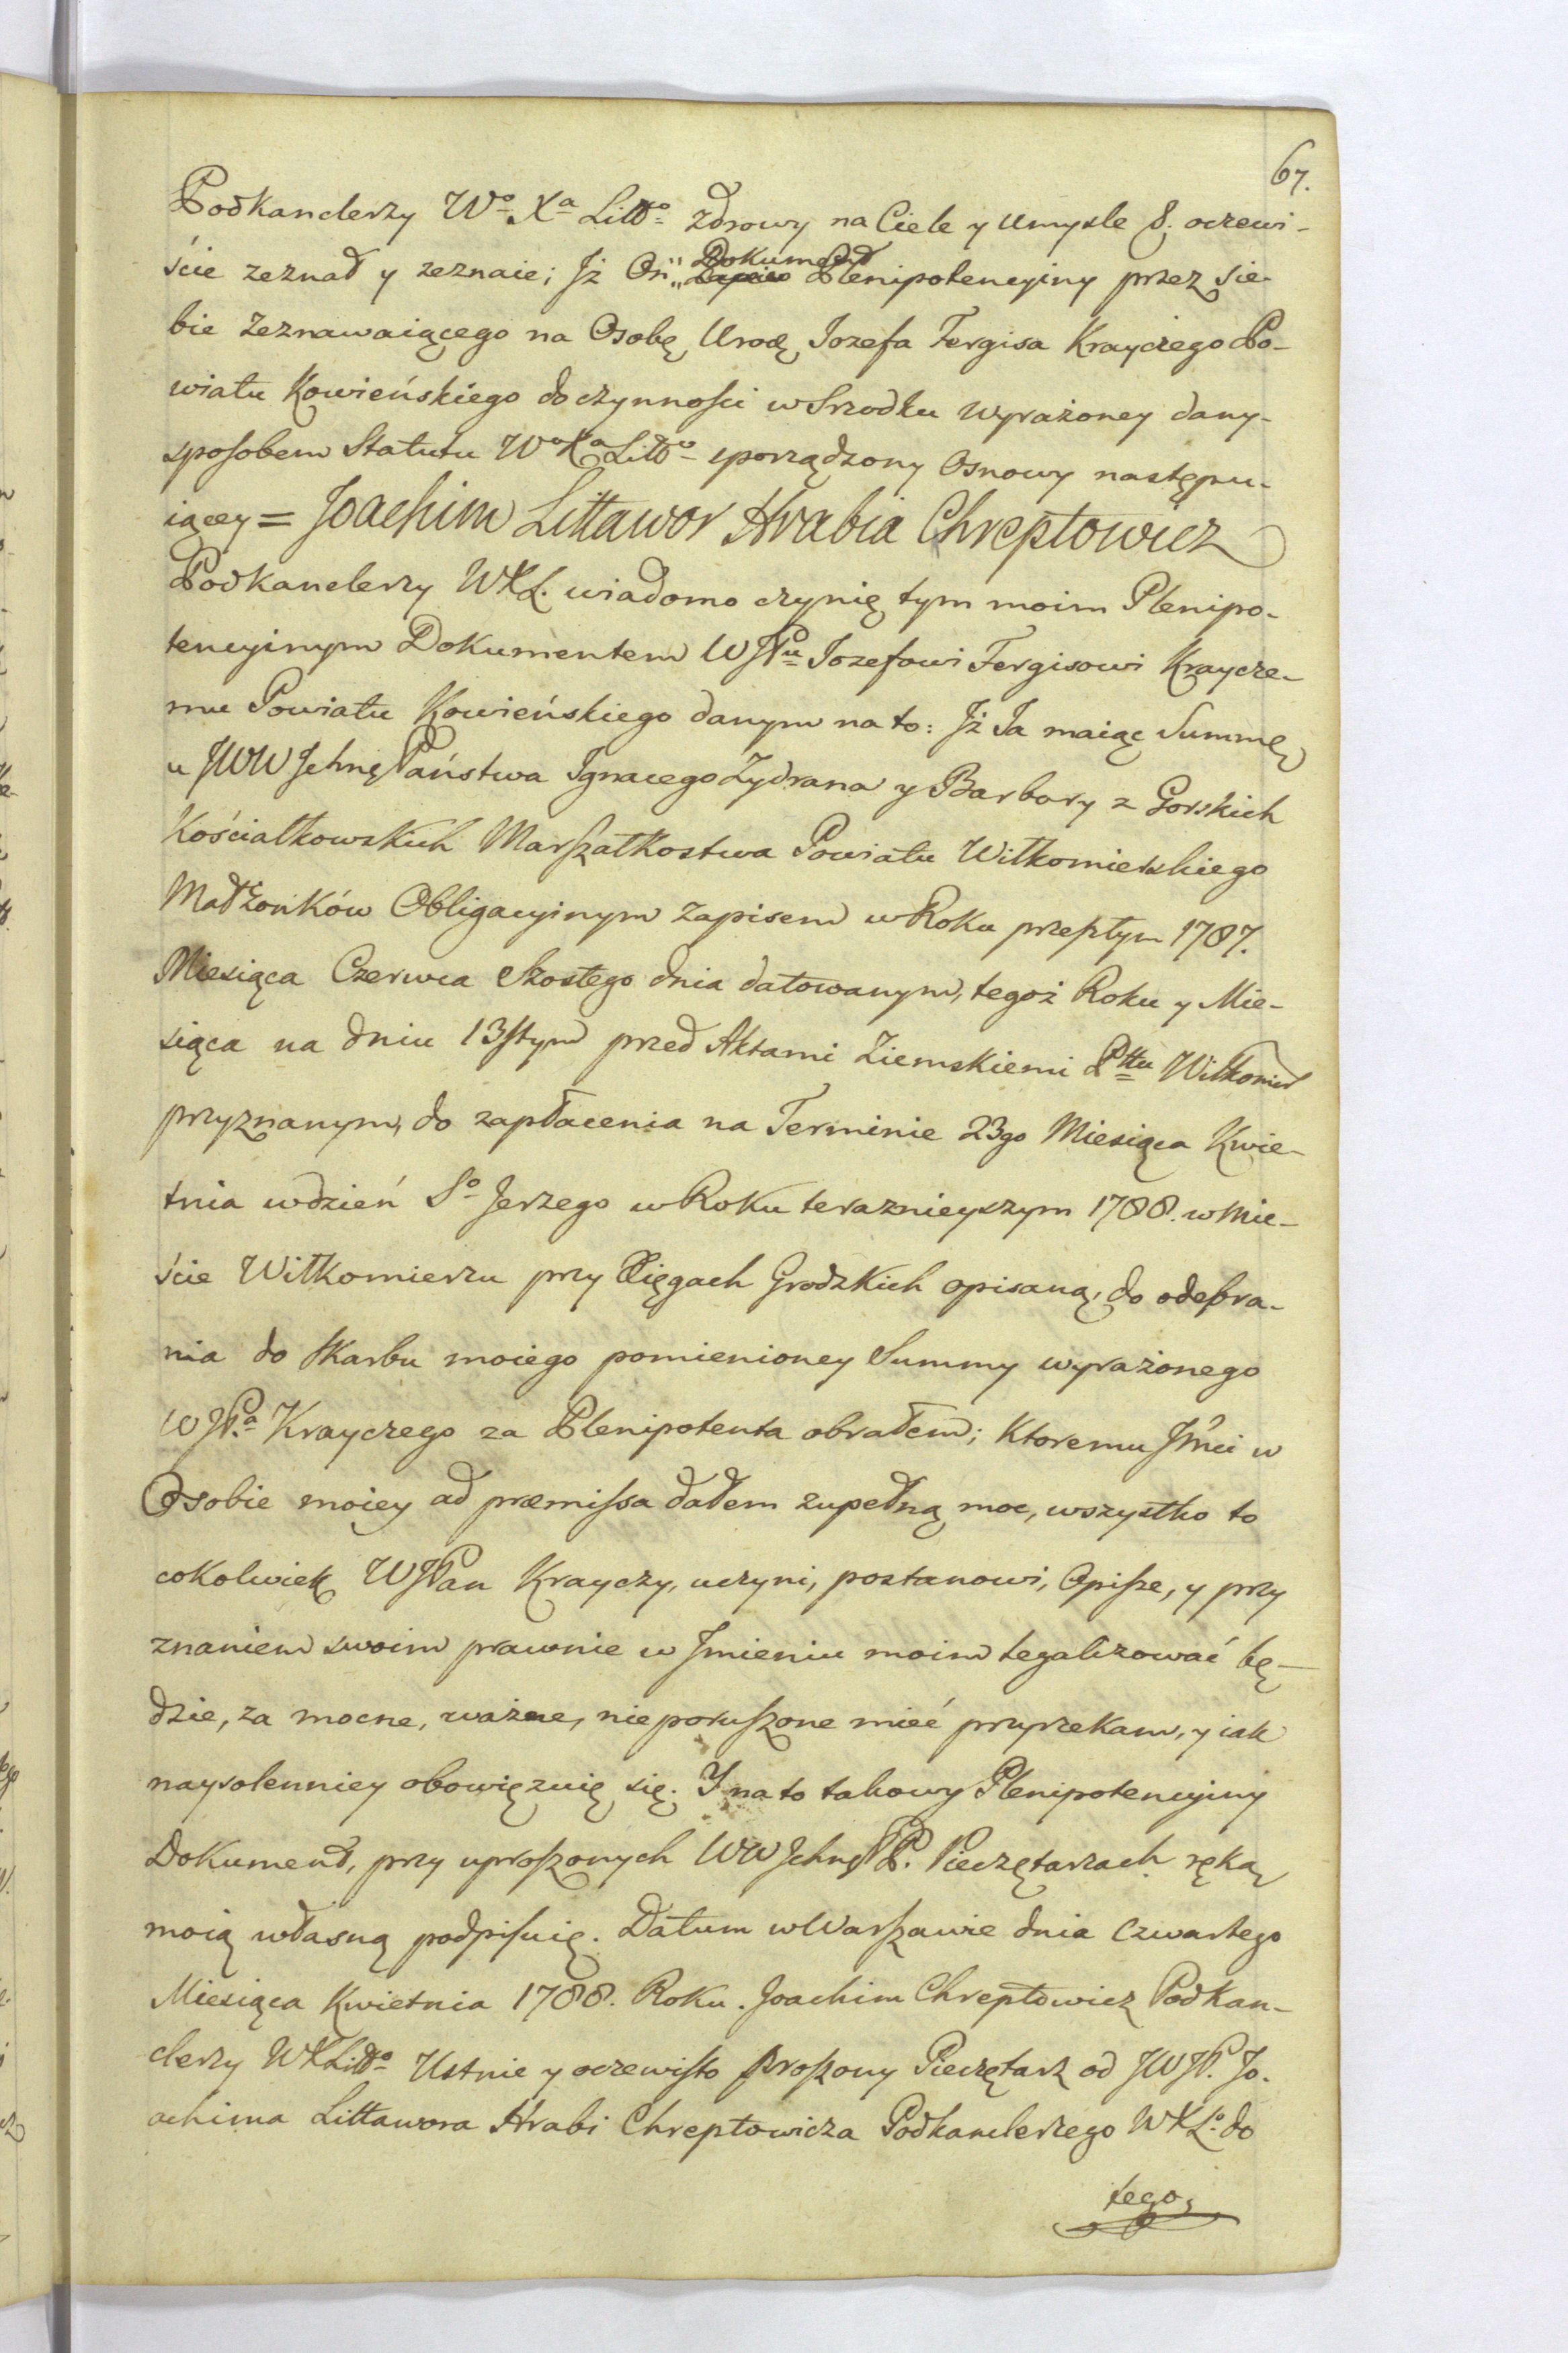 67.
Podkanclerzy Wo Xa Litto zdrowy na Ciele y Umysle &. oczewi-
ście zeznał y zeznaie; Jż On Dokument Zapis Plenipotencyiny przez sie-
bie Zeznawaiącego na Osobę Urodz Jozefa Fergisa Krayczego Po-
wiatu Kowieńskiego do czynności w Srzodku wyrażoney dany-
sposobem Statutu Wo Xa Litto sporządzony Osnowy następu-
iącey = Joachim Littawor Hrabia Chreptowicz
Podkanclerzy WXL. wiadomo czynię tym moim Plenipo-
tencyinym Dokumentem WJPu Jozefowi Fergisowi Kraycze-
mu Powiatu Kowieńskiego danym na to: Jż Ja maiąc Summę
u JWW Jchmę Państwa Jgnacego Zydrana y Barbary z Gorskich
Kościałkowskich Marszałkostwa Powiatu Wiłkomierskiego
Małżonków Obligacyinym zapisem w Roku przeszłym 1787.
Miesiąca Czerwca Szostego dnia datowanym, tegoż Roku y Mie-
siąca na dniu 13stym przed Aktami Ziemskiemi Pttu Wiłkomier
przyznanym, do zapłacenia na Terminie 23go Miesiąca Kwie-
tnia w dzień So Jerzego w Roku teraznieyszym 1788. w Mie-
ście Wiłkomierzu przy Xięgach Grodzkich opisaną, do odebra-
nia do Skarbu moiego pomienioney Summy wyrażonego
WJPa Krayczego za Plenipotenta obrałem; Ktoremu Jmci w
Osobie moiey ad præmissa dałem zupełną moc, wszystko to
cokolwiek WJPan Krayczy, uczyni, postanowi, Opisze, y przy
znaniem swoim prawnie w Jmieniu moim legalizować bę-
dzie, za mocne, ważne, nieporuszone mieć przyrzekam, y iak
naysolenniey obowięzuię się. Y na to takowy Plenipotencyiny
Dokument, przy uproszonych WW Jchmę P. Pieczętarzach ręką
moią własną podpisuię. Datum w Warszawie dnia Czwartego
Miesiąca Kwietnia 1788. Roku. Joachim Chreptowicz Podkan-
clerzy WXLitto Ustnie y oczewisto proszony Pieczętarz od JWJP. Jo-
achima Littawora Hrabi Chreptowicza Podkanclerzego WXLo do
tego